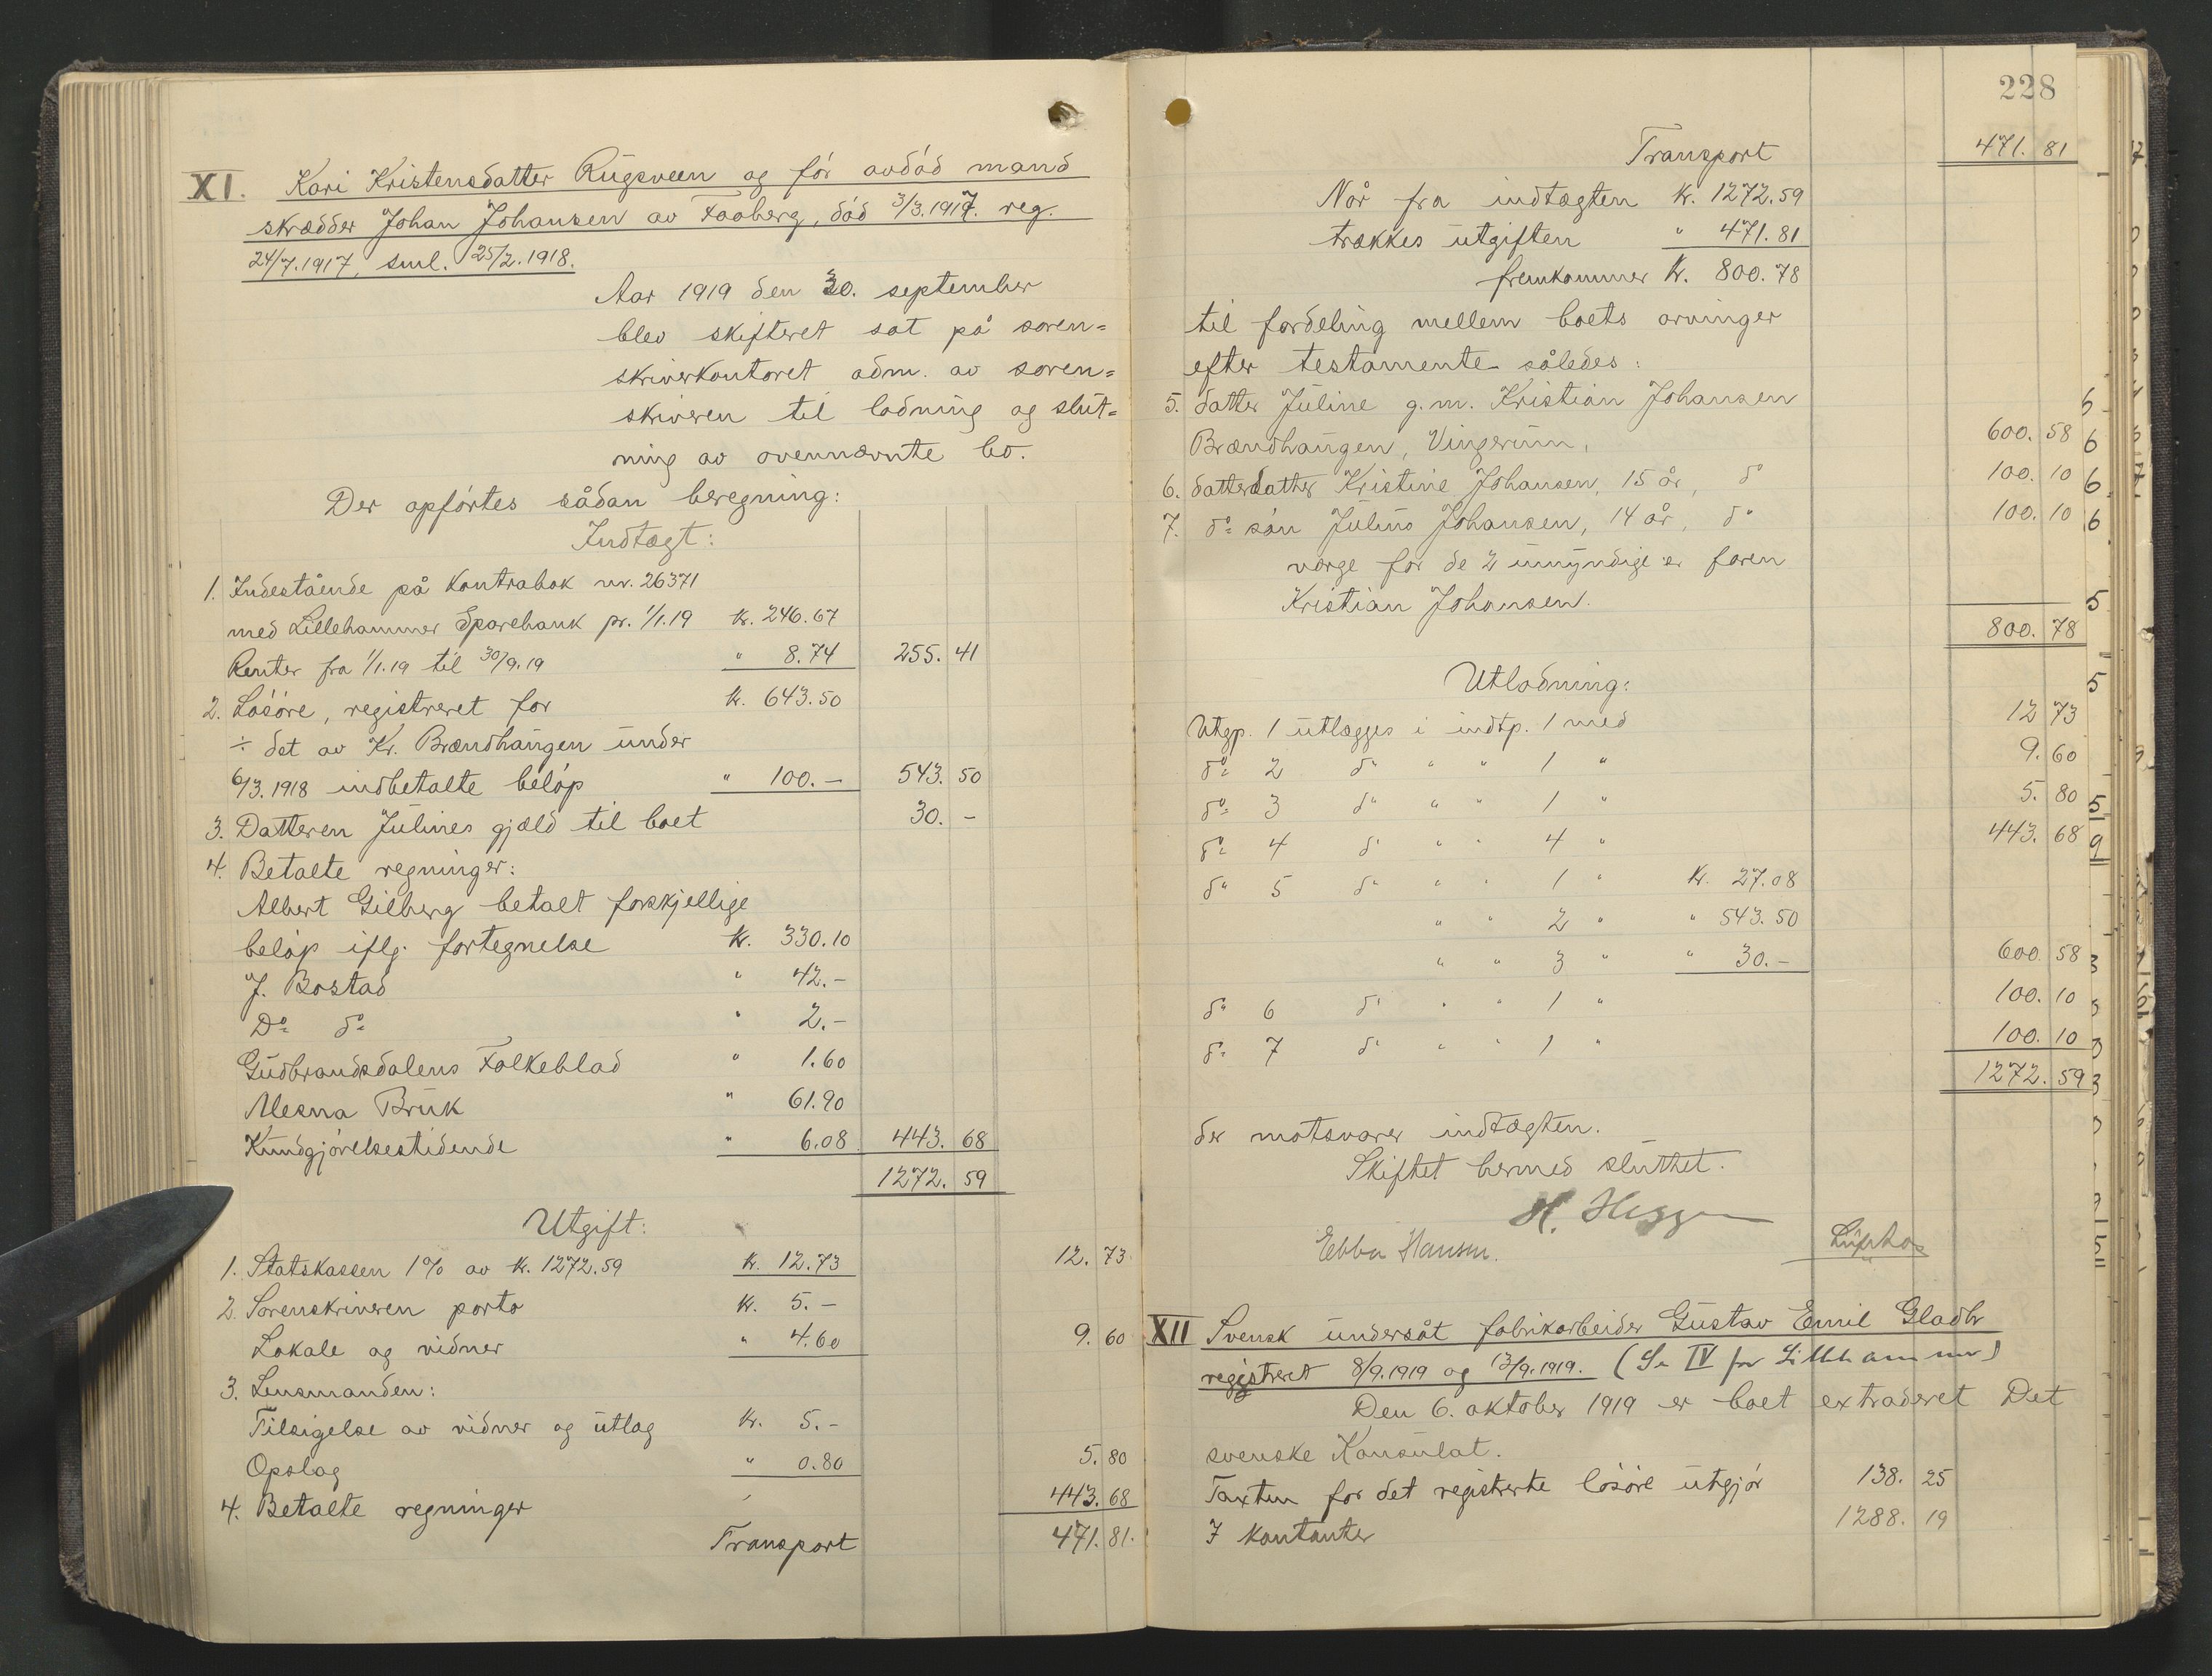 XI. Kari Kristensdatter Rugsveen og før avdød mand
skrædder Johan Johansen av Faaberg, død 3/3.1917. reg.
24/7.1917, sml. 25/2.1918.
Aar 1919 den 30. september
blev skifteret sat på soren=
skriverkontoret adm. av soren=
skriveren til lodning og slut=
ning av ovennævnte bo.
Der opførtes sådan beregning:
Indtægt:
1. Indestående på Kontrabok nr. 26371
med Lillehammer Sparebank pr. 1/1.19 kr. 246.67
Renter fra 1/1.19 til 30/9.19 " 8.74 255. 41
2. Løsøre, registreret for kr. 643.50
÷ det av Kr. Brændhaugen under
6/3.1918 indbetalte beløp " 100.- 543. 50
3. Datteren Julines gjæld til boet 30. -
4. Betalte regninger:
Albert Gilberg betalt forskjellige
beløp iflg. fortegnelse kr. 330.10
J. Bostad " 42.-
Do do " 2.-
Gudbrandsdalens Folkeblad " 1.60
Mesna Bruk " 61.90
Kundgjørelsestidende " 6.08 443. 68
1272. 59
Utgift:
1. Statskassen 1% av kr. 1272.59 kr. 12.73 12. 73.
2. Sorenskriveren porto kr. 5.-
Lokale og vidner " 4.60 9. 60
3. Lensmanden:
Tilsigelse av vidner og utlæg kr. 5.-
Opslag " 0.80 5. 80
4. Betalte regninger 443. 68
Transport 471. 81.
228
Transport 471. 81
Når fra indtægten kr. 1272.59
trækkes utgiften " 471.81
fremkommer kr. 800.78
til fordeling mellem boets arvinger
efter testamente således:
5. datter Juline g.m. Kristian Johansen
Brændhaugen, Vingerum, 600. 58
6. datterdatter Kristine Johansen, 15 år, do 100. 10
7. do søn Julius Johansen, 14 år, do 100. 10
værge for de 2 umyndige er faren
Kristian Johansen.
800. 78
Utlodning:
Utgp. 1 utlægges i indtp. 1 med 12 73
do 2 do " " 1 " 9. 60
do 3 do " " 1 " 5. 80
do 4 do " " 4 " 443. 68
do 5 do " " 1 " kr. 27.08
" " 2 " " 543.50
" " 3 " " 30.- 600. 58
do 6 do " " 1 " 100. 10
do 7 do " " 1 " 100. 10
1272. 59
der motsvarer indtægten.
Skiftet hermed sluttet.
H. Hegge
Ebba Hansen.
XII Svensk undersåt fabrikarbeider Gustav Emil Gladh
registreret 8/9.1919 og 13/9.1919. (Se IV for Lillehammer)
Den 6. oktober 1919 er boet extraderet Det
svenske Konsulat.
Taxten for det registrerte løsøre utgjør 138. 25
I kontanter 1288. 19